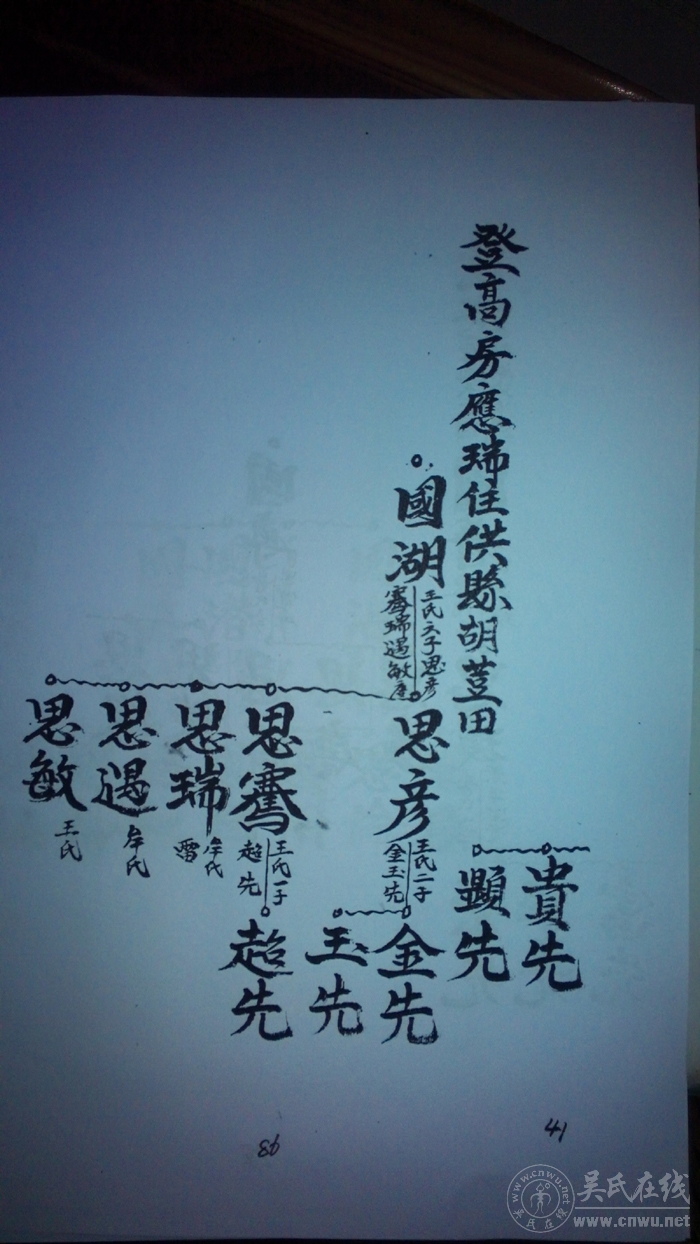 登高房應瑞住供縣胡荳田
貴先
顯先
國湖
王氏六子思彦
騫瑞遐敏彦
思彦
王氏二子
金玉先
金先
玉先
思騫
王氏一子
超先
超先
思瑞
牟氏
雷
思遐
牟氏
思敏
王氏
41
86
吴氏在线
www.cnwu.net